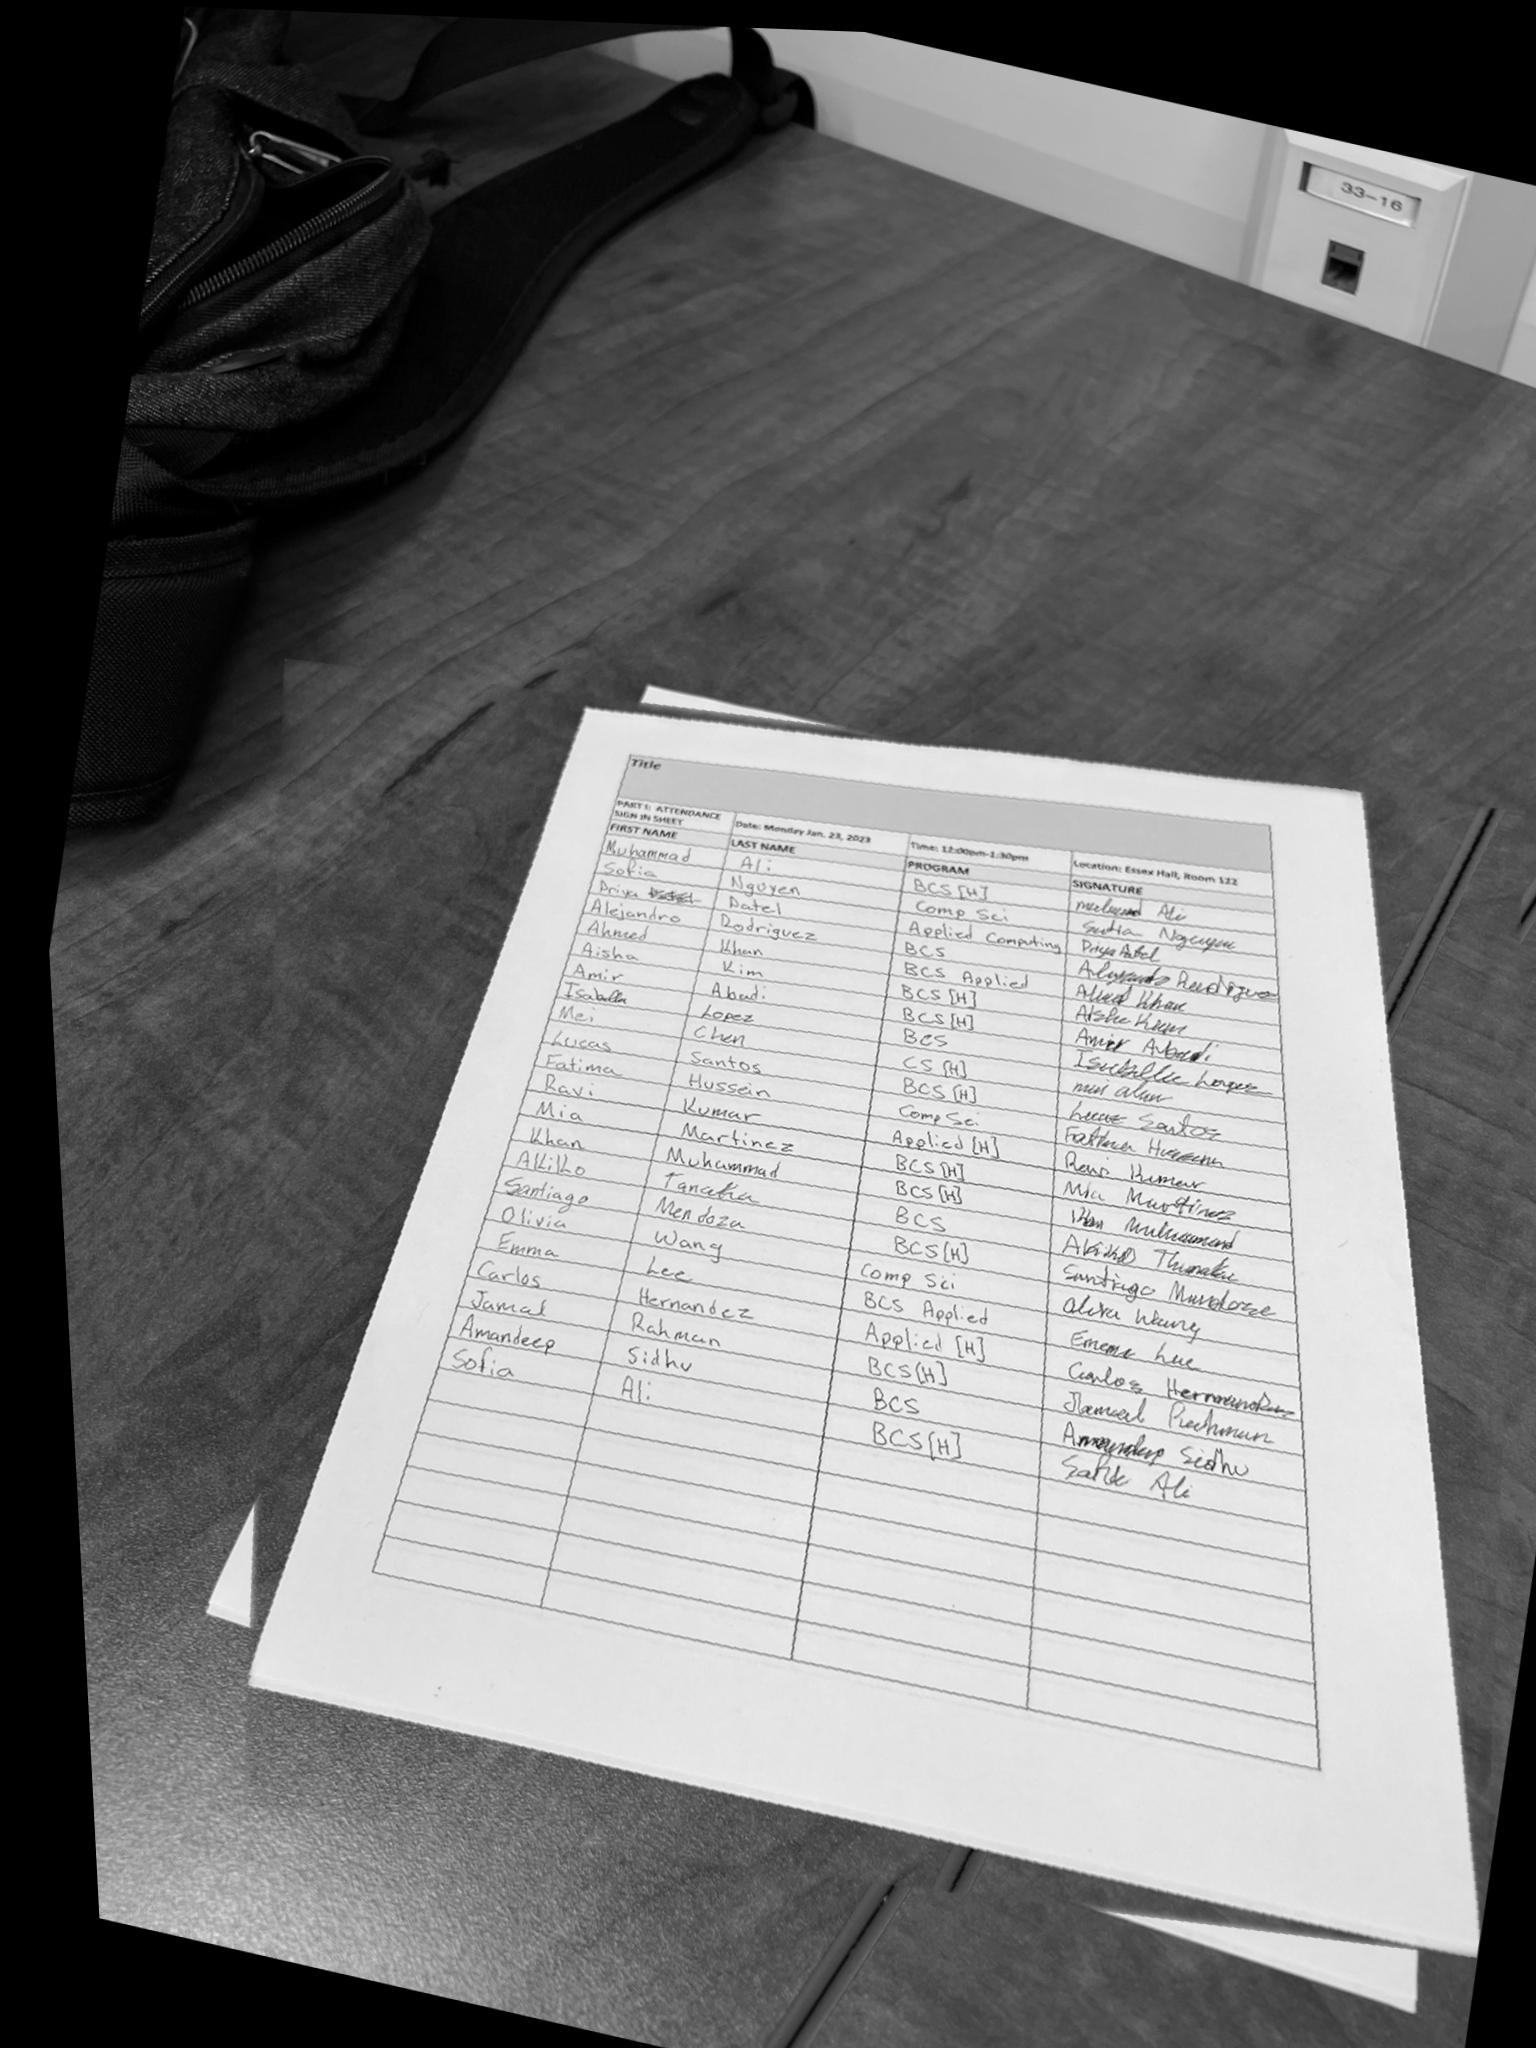 33-16
Title
PART I: ATTENDANCE SIGN IN SHEET Date: Monday Jan. 23, 2023 Time: 12:00pm-1:30pm Location: Essex Hall, Room 122
FIRST NAME LAST NAME PROGRAM SIGNATURE
Muhammad Ali BCS [H] Ali
Sofia Nguyen Comp Sci Sofia Nguyen
Priya Patel Applied Computing Priya Patel
Alejandro Rodriguez BCS Rodriguez
Ahmed Khan BCS Applied Ahmed Khan
Aisha Kim BCS [H] Aisha Kim
Amir Abadi BCS [H] Amir Abadi
Isabella Lopez BCS Isabella Lopez
Mei Chen CS [H] mei chen
Lucas Santos BCS [H] Lucas Santos
Fatima Hussein Comp Sci Fatima Hussein
Ravi Kumar Applied [H] Ravi Kumar
Mia Martinez BCS [H] Mia Martinez
Khan Muhammad BCS [H] Khan Muhammad
Akiko Tanaka BCS Akiko
Santiago Mendoza BCS [H] Santiago
Olivia Wang Comp Sci Wang
Emma Lee BCS Applied Lee
Carlos Hernandez Applied [H] Carlos
Jamal Rahman BCS [H] Jamal Rahman
Amandeep Sidhu BCS Amandeep Sidhu
Sofia Ali BCS [H] Ali